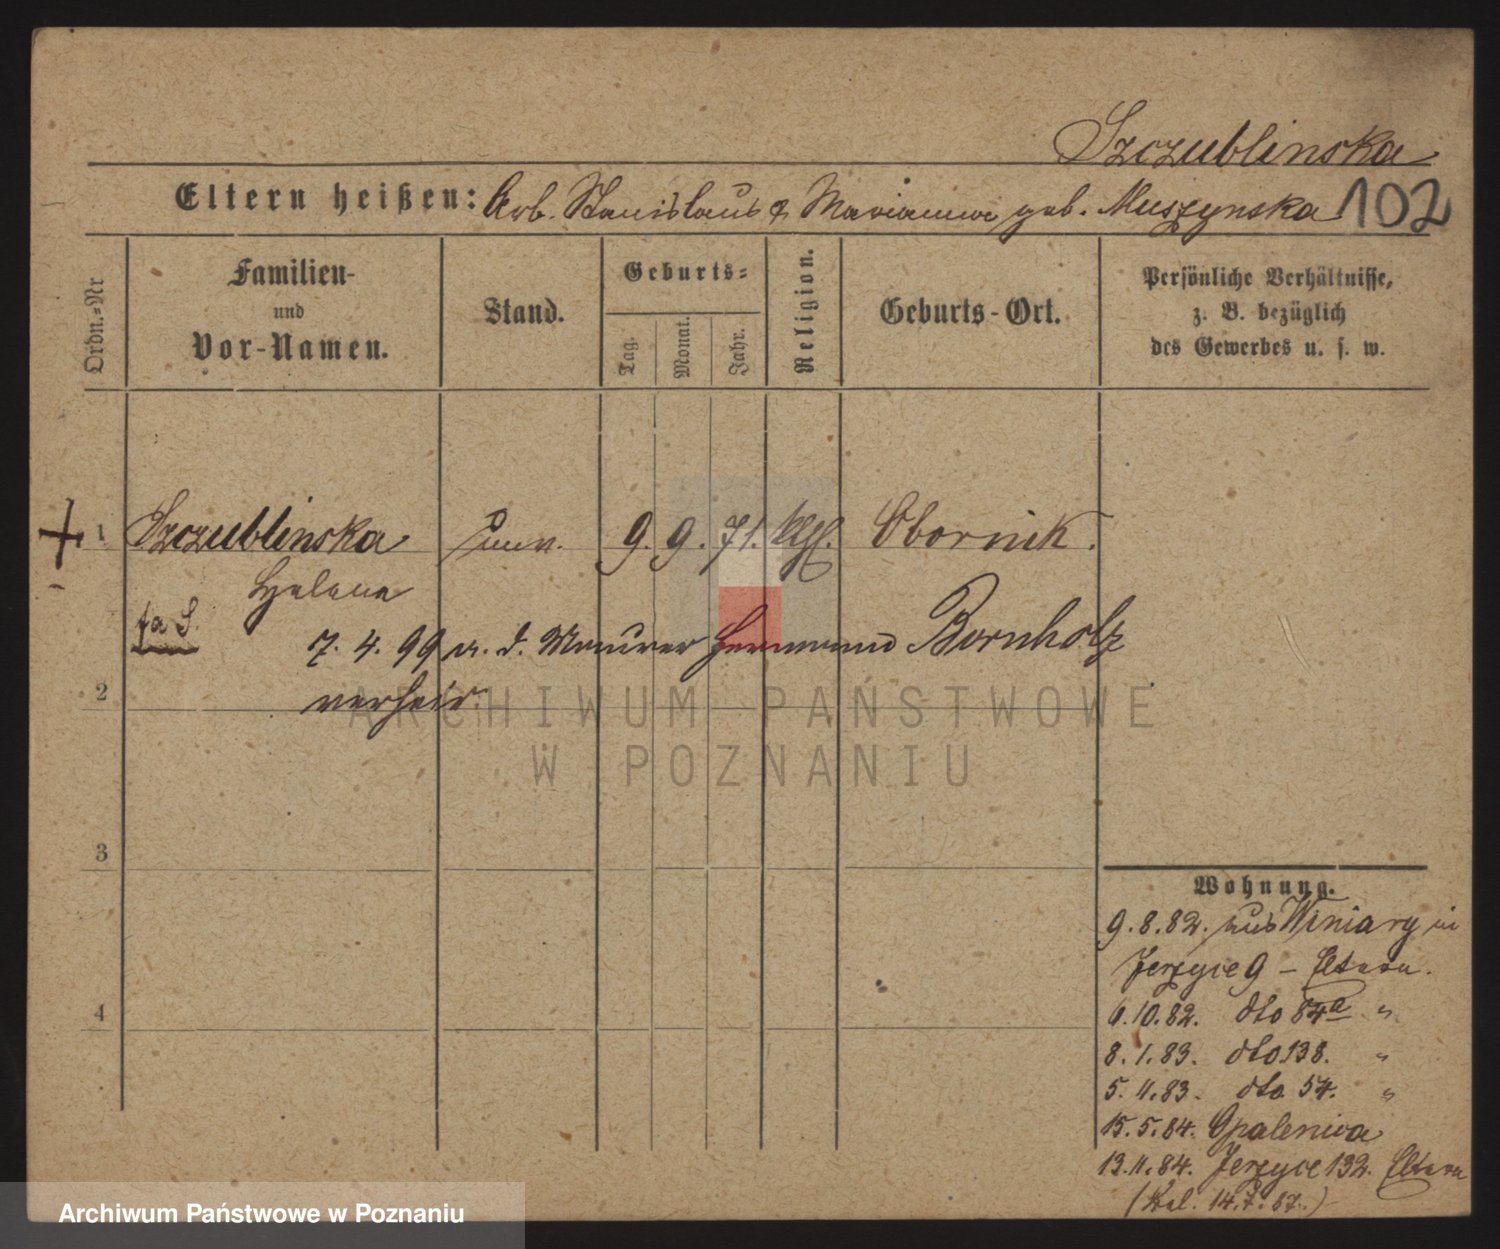 Szczublinska
Eltern heißen: Arb. Stanislaus & Marianna geb. Muszynska 102
Ordn.=Nr
Familien-
und
Vor-Namen.
Stand.
Geburts=
Tag.
Monat.
Jahr.
Religion.
Geburts-Ort.
Persönliche Verhältnisse,
z. B. bezüglich
des Gewerbes u. s. w.
1 Szczublinska unv. 9. 9. 71. kth. Obornik.
Helena
7. 4. 99 m. d. Maurer Hermann Bornholz
verheir.
2
3
4
Wohnung.
9. 8. 82. aus Winiary in
Jerzyce 9 – Eltern.
6. 10. 82. dto 84a "
8. 1. 83. dto 138. "
5. 11. 83. dto 54. "
15. 5. 84. Opalenica
13. 11. 84. Jerzyce 132. Eltern
14. 7. 87.)
ARCHIWUM PAŃSTWOWE
W POZNANIU
Archiwum Państwowe w Poznaniu